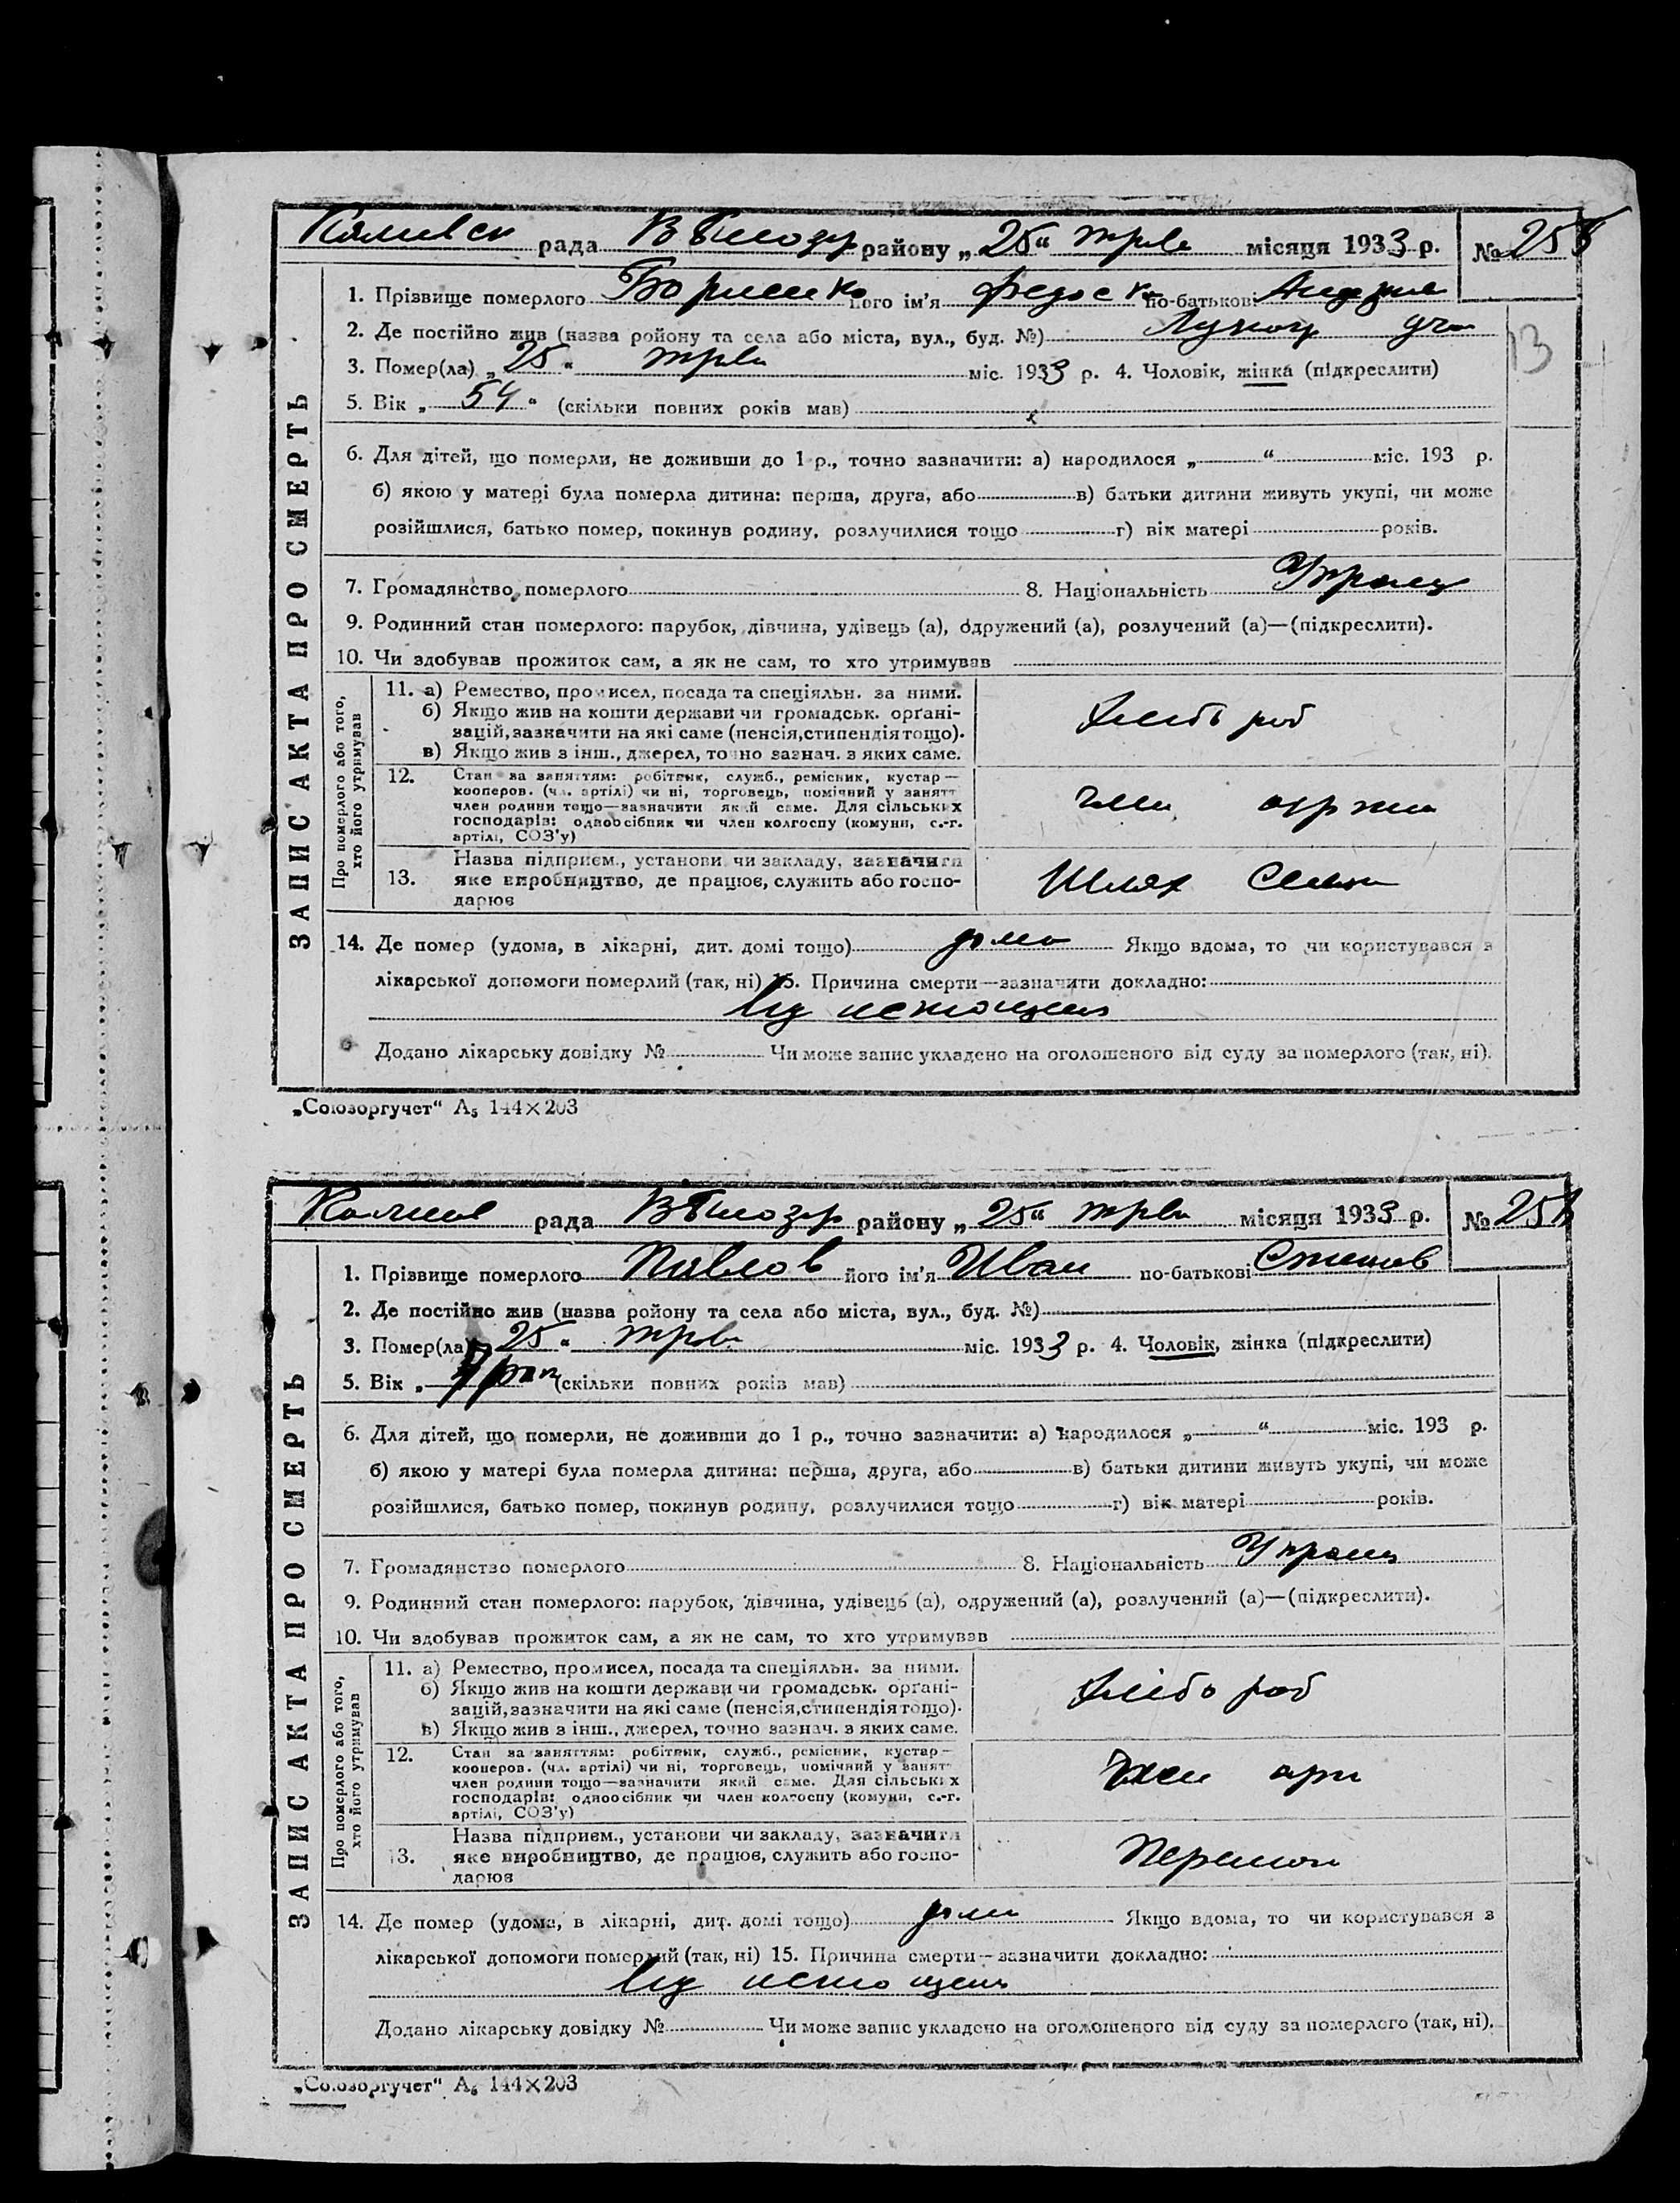 рада В Білозер району „25“ трав місяця 1933 р. №
1. Прізвище померлого Борисенко його ім'я Федоск по-батькові
2. Де постійно жив (назва ройону та села або міста, вул., буд. №)
3. Помер(ла) „25“ трав міс. 1933 р. 4. Чоловік, жінка (підкреслити)
13
5. Вік „54“ (скільки повних років мав)
6. Для дітей, що померли, не доживши до 1 р., точно зазначити: а) народилося „ “ міс. 193 р.
б) якою у матері була померла дитина: перша, друга, або в) батьки дитини живуть укупі, чи може
розійшлися, батько помер, покинув родину, розлучилися тощо г) вік матері років.
7. Громадянство померлого 8. Національність Украец
9. Родинний стан померлого: парубок, дівчина, удівець (а), одружений (а), розлучений (а)—(підкреслити).
10. Чи здобував прожиток сам, а як не сам, то хто утримував
Про померлого або того,
хто його утримував
11. а) Ремество, промисел, посада та спеціяльн. за ними.
б) Якщо жив на кошти держави чи громадськ. орґані-
зацій, зазначити на які саме (пенсія, стипендія тощо).
в) Якщо жив з інш., джерел, точно зазнач. з яких саме.
хлібороб
12. Стан за заняттям: робітник, служб., ремісник, кустар—
кооперов. (чл. артілі) чи ні, торговець, помічний у занятт
член родини тощо—зазначити який саме. Для сільських
господарів: одноосібник чи член колгоспу (комуни, с.-г.
артілі, СОЗ'у)
13. Назва підприєм., установи чи закладу, зазначити
яке виробництво, де працює, служить або госпо-
дарює
Шлях
14. Де помер (удома, в лікарні, дит. домі тощо) дома Якщо вдома, то чи користувався з
лікарської допомоги померлий (так, ні) 15. Причина смерти—зазначити докладно:
від истощен
Додано лікарську довідку № Чи може запис укладено на оголошеного від суду за померлого (так, ні).
ЗАПИС АКТА ПРО СМЕРТЬ
„Союзоргучет“ А₅ 144×203
рада В Білозер району „25“ трав місяця 1933 р. №
1. Прізвище померлого Павлов його ім'я Иван по-батькові Степанов
2. Де постійно жив (назва ройону та села або міста, вул., буд. №)
3. Помер(ла) „25“ трав міс. 1933 р. 4. Чоловік, жінка (підкреслити)
5. Вік „ рок (скільки повних років мав)
6. Для дітей, що померли, не доживши до 1 р., точно зазначити: а) народилося „ “ міс. 193 р.
б) якою у матері була померла дитина: перша, друга, або в) батьки дитини живуть укупі, чи може
розійшлися, батько помер, покинув родину, розлучилися тощо г) вік матері років.
7. Громадянство померлого 8. Національність Украец
9. Родинний стан померлого: парубок, дівчина, удівець (а), одружений (а), розлучений (а)—(підкреслити).
10. Чи здобував прожиток сам, а як не сам, то хто утримував
Про померлого або того,
хто його утримував
11. а) Ремество, промисел, посада та спеціяльн. за ними.
б) Якщо жив на кошти держави чи громадськ. орґані-
зацій, зазначити на які саме (пенсія, стипендія тощо).
в) Якщо жив з інш., джерел, точно зазнач. з яких саме.
хлібороб
12. Стан за заняттям: робітник, служб., ремісник, кустар—
кооперов. (чл. артілі) чи ні, торговець, помічний у занятт
член родини тощо—зазначити який саме. Для сільських
господарів: одноосібник чи член колгоспу (комуни, с.-г.
артілі, СОЗ'у)
13. Назва підприєм., установи чи закладу, зазначити
яке виробництво, де працює, служить або госпо-
дарює
14. Де помер (удома, в лікарні, дит. домі тощо) дома Якщо вдома, то чи користувався з
лікарської допомоги померлий (так, ні) 15. Причина смерти—зазначити докладно:
від истощен
Додано лікарську довідку № Чи може запис укладено на оголошеного від суду за померлого (так, ні).
ЗАПИС АКТА ПРО СМЕРТЬ
„Союзоргучет“ А₅ 144×203